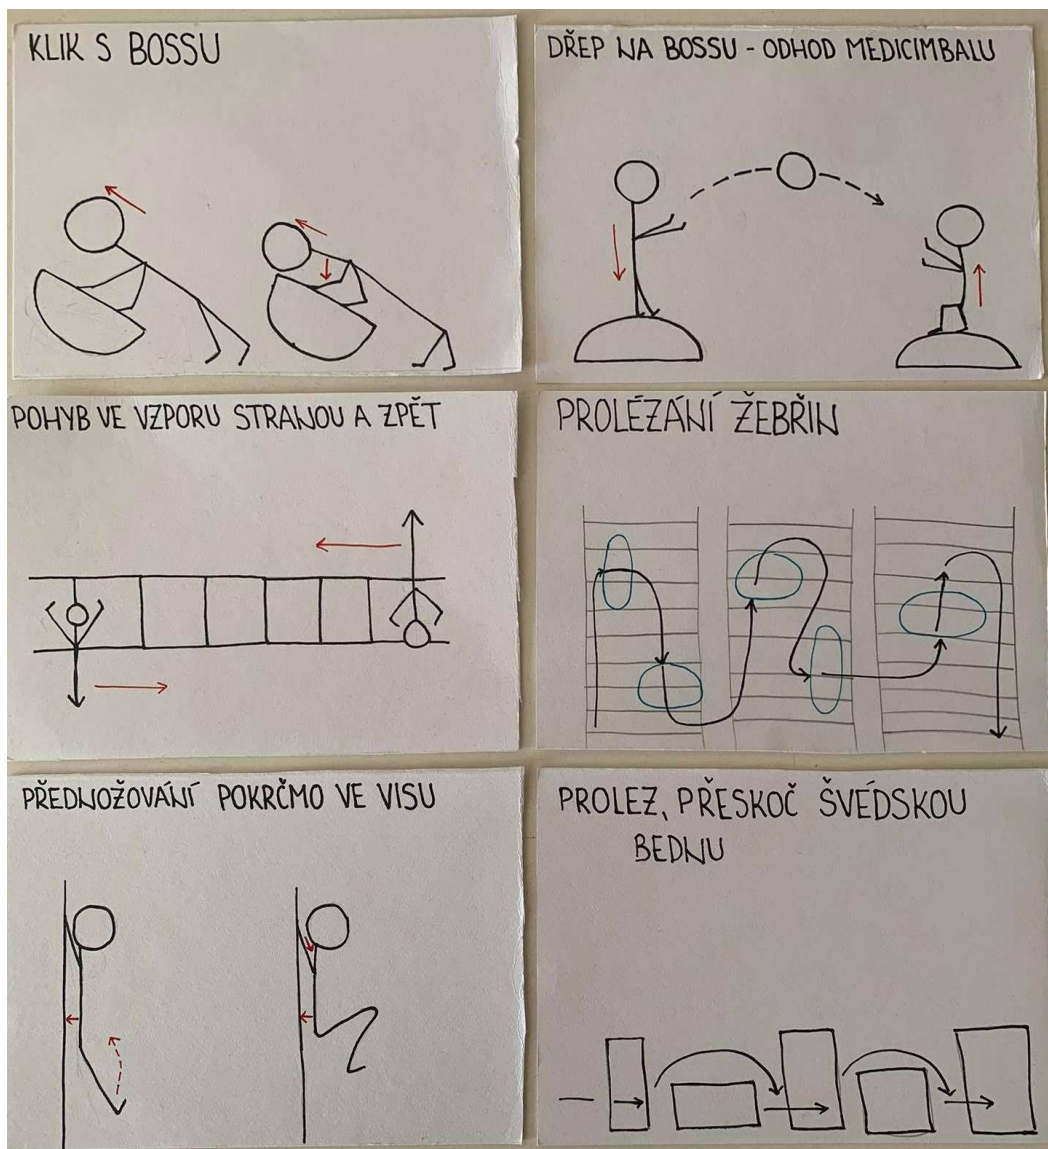 KLIK S BOSSU
DŘEP NA BOSSU - ODHOD MEDICIMBALU
POHYB VE VZPORU STRANOU A ZPĚT
PROLÉZÁNÍ ŽEBŘIN
PŘEDNOŽOVÁNÍ POKRČMO VE VISU
PROLEZ, PŘESKOČ ŠVÉDSKOU
BEDNU